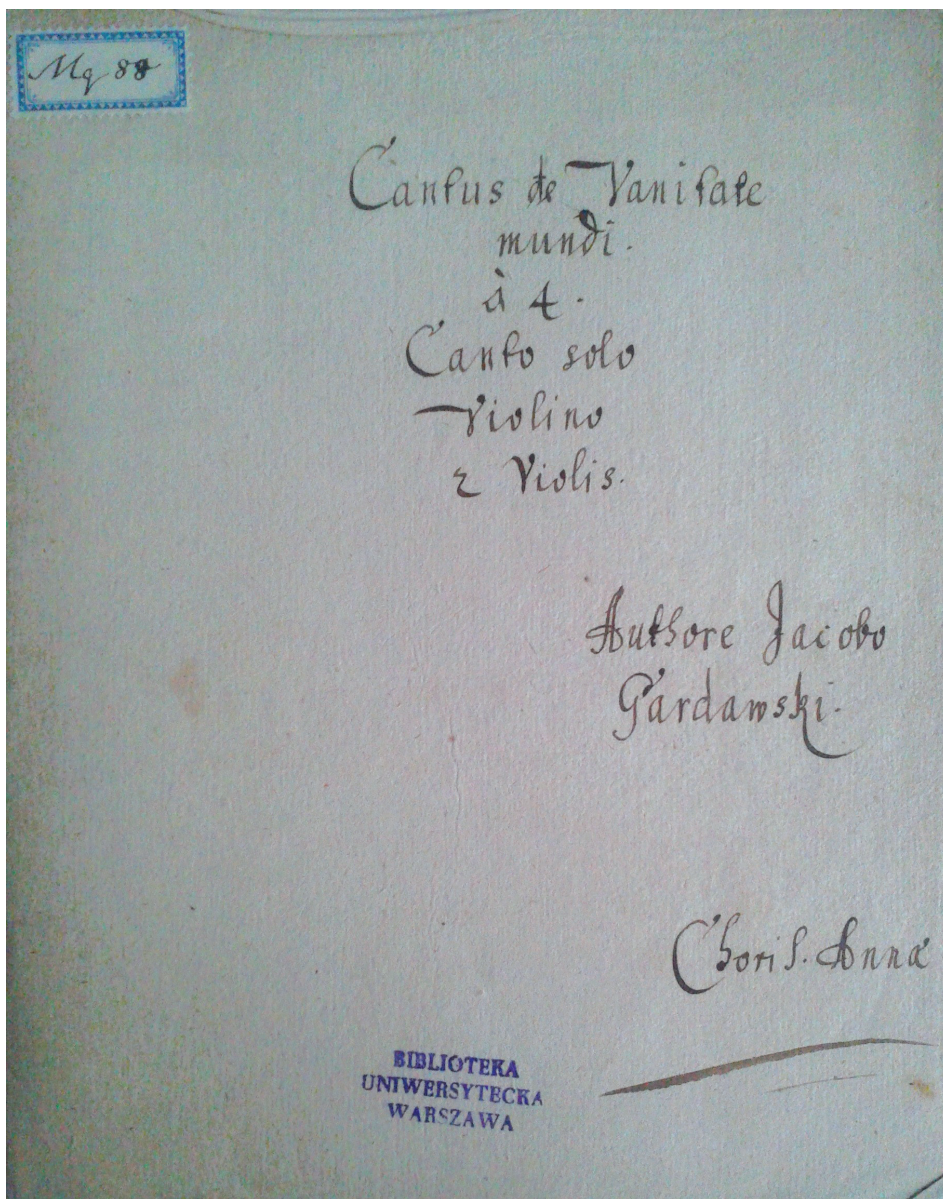 Mq 88
Cantus de Vanitate
mundi.
à 4.
Canto solo
Violino
2 Violis.
Authore Jacobo
Gardawski.
Chori S. Annæ
BIBLIOTEKA
UNIWERSYTECKA
WARSZAWA